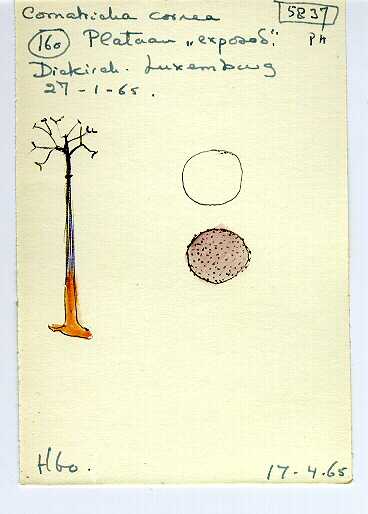 Comatricha cornea
5837
160 Plataan „exposé".
PH
Diekirch. Luxemburg
27-1-65.
H60.
17-4-65